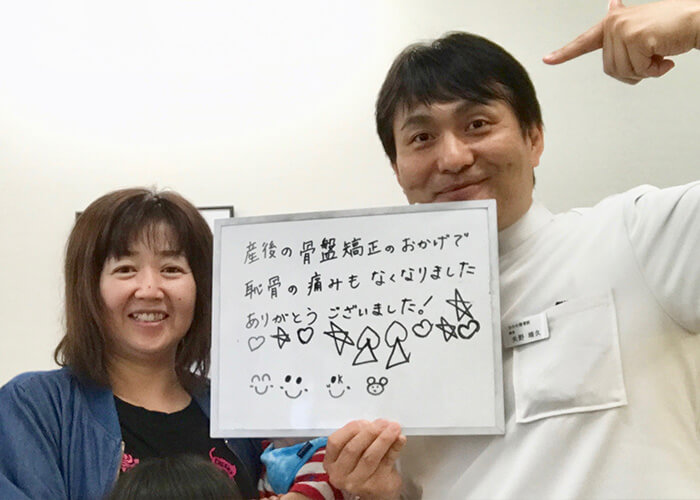 産後の骨盤矯正のおかげで
恥骨の痛みも なくなりました
ありがとう ございました!
矢野 晴久